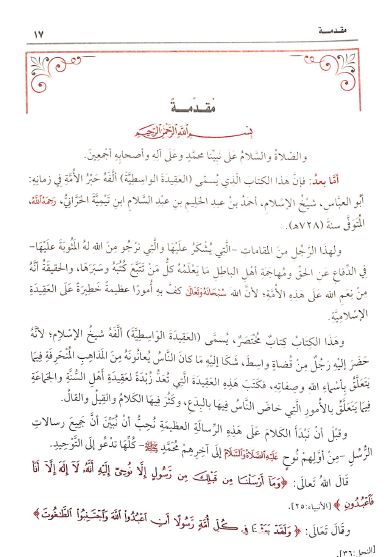 مقدمة ١٧
مُقدِّمَةٌ
بِسْمِ اللَّهِ الرَّحْمَنِ الرَّحِيمِ
والصَّلاةُ والسَّلامُ على نبيِّنا محمدٍ وعَلى آلِهِ وأصحابِهِ أجمعينَ.
أمَّا بعدُ: فإنَّ هذا الكتابَ الَّذي يُسمَّى (العقيدةَ الواسِطيَّةَ) ألَّفَهُ حَبْرُ الأُمَّةِ في زمانِهِ:
أبو العبَّاسِ، شيخُ الإسلامِ، أحمدُ بنُ عبدِ الحليمِ بنِ عبدِ السَّلامِ ابنِ تَيْمِيَّةَ الحَرَّانيُّ، رَحِمَهُ اللَّهُ،
المُتَوفَّى سنةَ (٧٢٨هـ).
ولهذا الرَّجُلِ منَ المقاماتِ -الَّتي يُشْكَرُ علَيْهَا والَّتي نَرْجو مِنَ اللهِ لهُ المَثُوبَةَ عليْها-
في الدِّفاعِ عنِ الحقِّ ومُهاجَمةِ أهلِ الباطلِ ما يَعلَمُهُ كلُّ مَنْ تتبَّعَ كُتُبَهُ وسَبَرَها، والحقيقةُ أنَّهُ
مِنْ نِعَمِ اللهِ على هَذِهِ الأُمَّةِ؛ لأنَّ اللهَ سُبْحَانَهُ وَتَعَالَى كَفَّ بهِ أُمورًا عظيمةً خطيرةً على العقيدةِ
الإسلاميَّةِ.
وهذا الكتابُ كتابٌ مُختَصَرٌ، يُسمَّى (العقيدةَ الواسِطيَّةَ) ألَّفَهُ شيخُ الإسلامِ؛ لأنَّهُ
حَضَرَ إليهِ رَجُلٌ مِنْ قُضاةِ واسِطَ، شَكا إليْهِ ما كانَ النَّاسُ يُعانُونَهُ مِنَ المذاهِبِ المُنحَرِفةِ فِيمَا
يتعلَّقُ بأسْماءِ اللهِ وصِفاتِهِ، فكَتَبَ هذِهِ العقيدةَ الَّتي تُعَدُّ زُبْدَةً لعَقيدةِ أهلِ السُّنَّةِ والجَماعَةِ
فِيمَا يَتَعلَّقُ بالأُمورِ الَّتي خاضَ النَّاسُ فيها بالبِدَعِ، وكَثُرَ فِيهَا الكلامُ والقِيلُ والقَالُ.
وقبلَ أنْ نَبْدَأَ الكلامَ على هَذِهِ الرِّسالةِ العظيمةِ نُحِبُّ أنْ نُبَيِّنَ أنَّ جميعَ رسالاتِ
الرُّسُلِ -مِنْ أوَّلِهِمْ نُوحٍ عَلَيْهِ الصَّلَاةُ وَالسَّلَامُ إلى آخِرِهِمْ محمَّدٍ ﷺ- كلُّها تَدعُو إِلى التَّوْحيدِ.
قالَ اللهُ تَعالَى: ﴿وَمَا أَرْسَلْنَا مِن قَبْلِكَ مِن رَّسُولٍ إِلَّا نُوحِي إِلَيْهِ أَنَّهُ لَا إِلَهَ إِلَّا أَنَا
فَاعْبُدُونِ﴾ [الأنبياء:٢٥].
وقالَ تَعالَى: ﴿وَلَقَدْ بَعَثْنَا فِي كُلِّ أُمَّةٍ رَّسُولًا أَنِ اعْبُدُوا اللَّهَ وَاجْتَنِبُوا الطَّاغُوتَ﴾
[النحل:٣٦].